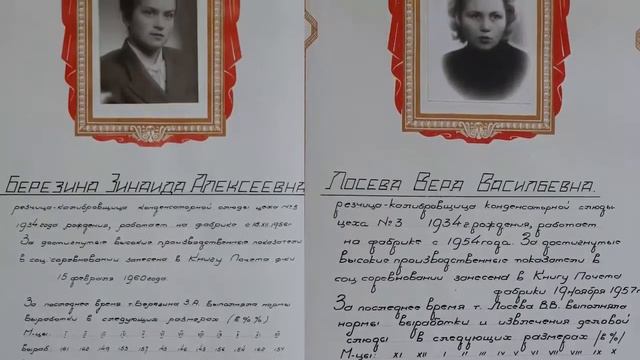 БЕРЕЗИНА ЗИНАИДА АЛЕКСЕЕВНА
резчица-калибровщица конденсаторной слюды цеха №3
1934 года рождения, работает на фабрике с
За достигнутые высокие производственные показатели
в соц. соревновании занесена в Книгу Почета ф-ки
15 февраля 1960 года.
За последнее время т. Березина З.А. выполняла нормы
выработки в следующих размерах (в %%)
М-цы:
Выраб.
ЛОСЕВА ВЕРА ВАСИЛЬЕВНА.
резчица-калибровщица конденсаторной слюды
цеха №3 1934 г рождения, работает
на фабрике с 1954 года. За достигнутые
высокие производственные показатели в
соц. соревновании занесена в Книгу Почета
фабрики 19 ноября 1957 г.
За последнее время т. Лосева В.В. выполняла
нормы выработки и извлечения деловой
слюды в следующих размерах (в %)
М-цы: XI XII I II III IV V VI VII VIII IX X